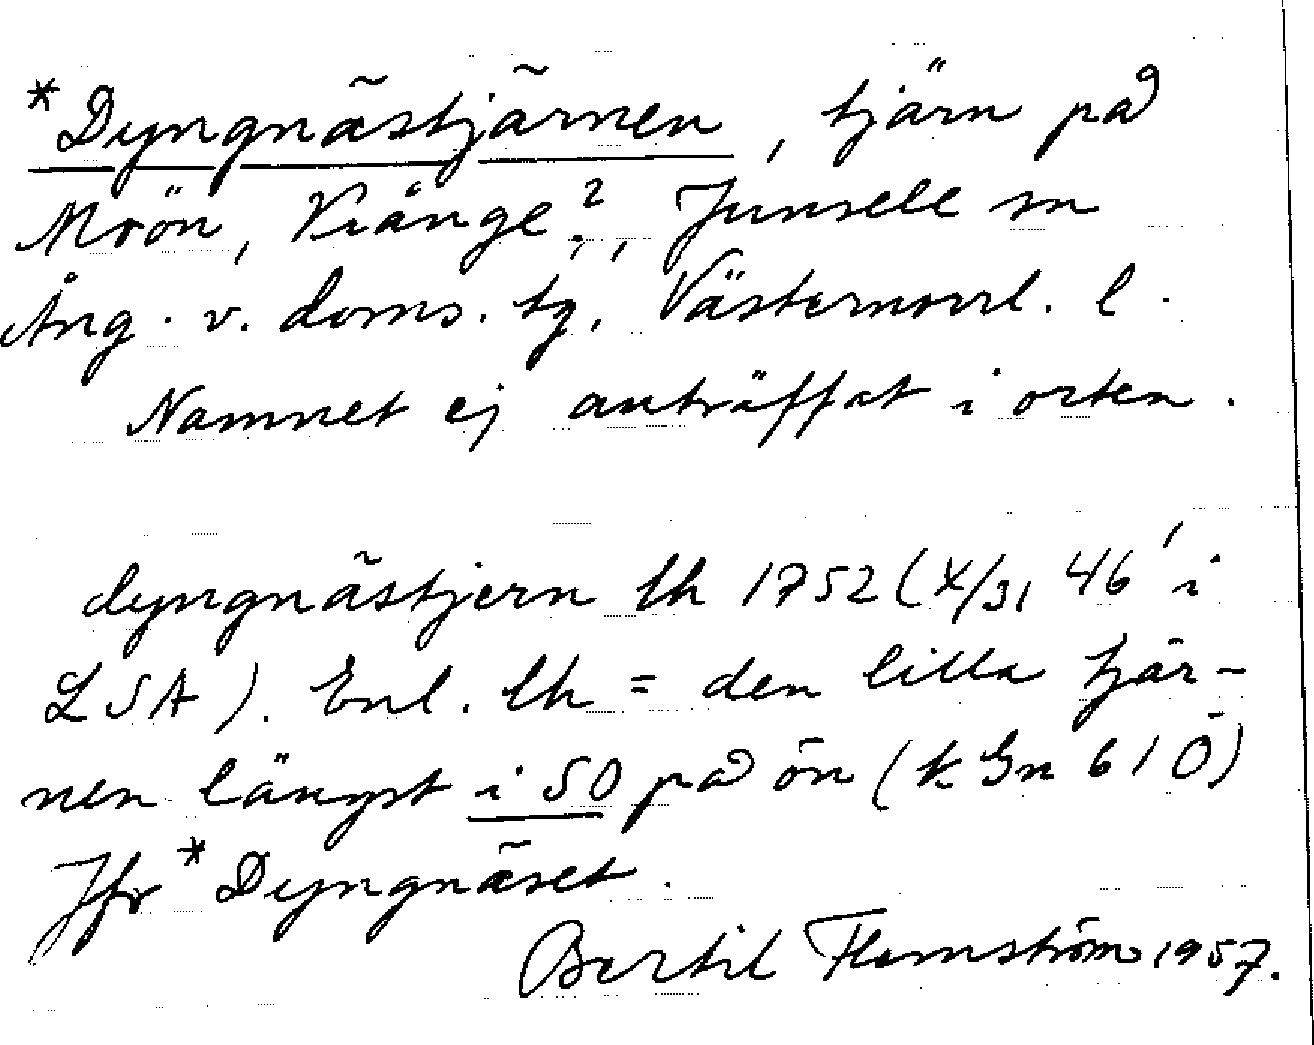 *Dyngnästjärnen, tjärn på
Moön, Vränge?, Junsele sn
Ång. v. doms. tg, Västernorrl. l.
Namnet ej anträffat i orten.
dyngnästjern lh 1752 (X/31 46' i
LSA). Enl. lh = den lilla tjär-
nen längst i SO på ön (k Gn 61 Ö)
Jfr *Dyngnäset.
Bertil Flemström 1957.